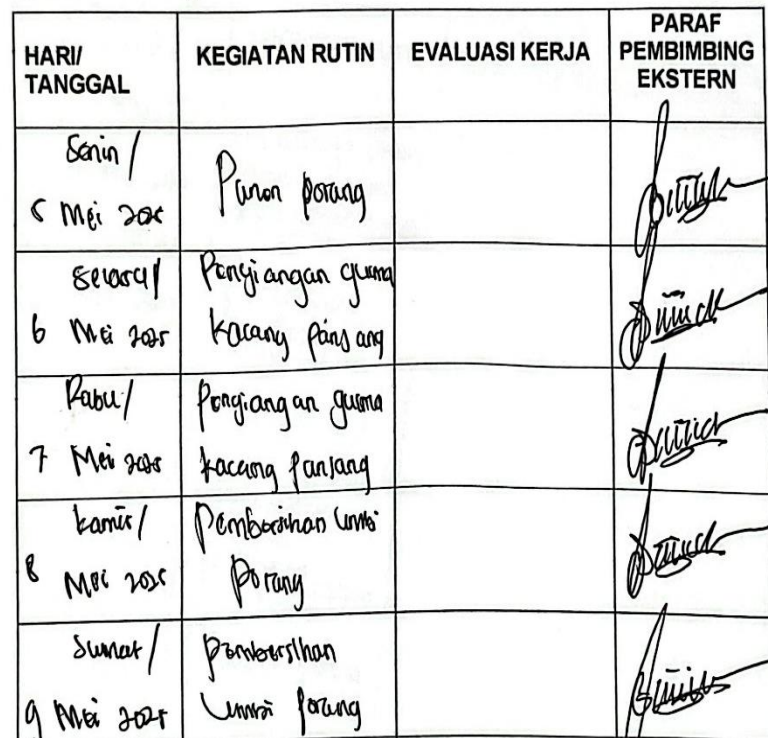 HARI/
TANGGAL
KEGIATAN RUTIN
EVALUASI KERJA
PARAF
PEMBIMBING
EKSTERN
Senin /
5 Mei 2025
Panen porang
Selasa /
6 Mei 2025
Penyiangan gulma
kacang panjang
Rabu /
7 Mei 2025
Penyiangan gulma
kacang panjang
Kamis /
8 Mei 2025
Pembersihan umbi
Porang
Jumat /
9 Mei 2025
Pembersihan
Umbi porang